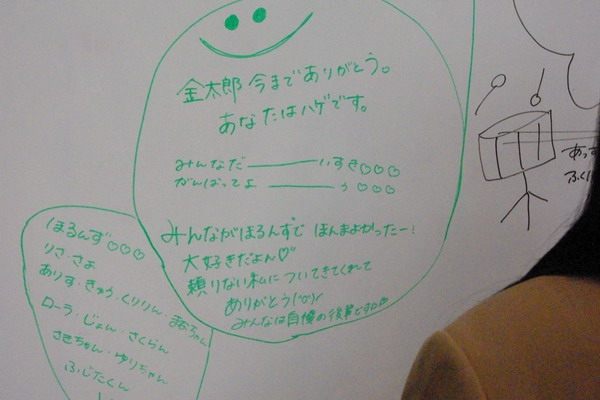 金太郎 今までありがとう。
あなたはハゲです。
みんなだ――――いすき♡♡♡
がんばってよ――――う♡♡♡
みんながほるんずで ほんまよかったー!
大好きだよん♡
頼りない私についてきてくれて
ありがとう(^o^)/
みんなは自慢の後輩です
ほるんず♡♡♡
りさ・さよ
ありす・きゅう・くりりん・まあちゃん
ローラ・じょん・さくらん
さきちゃん・ゆりちゃん
ふじたくん
あっす
ふく